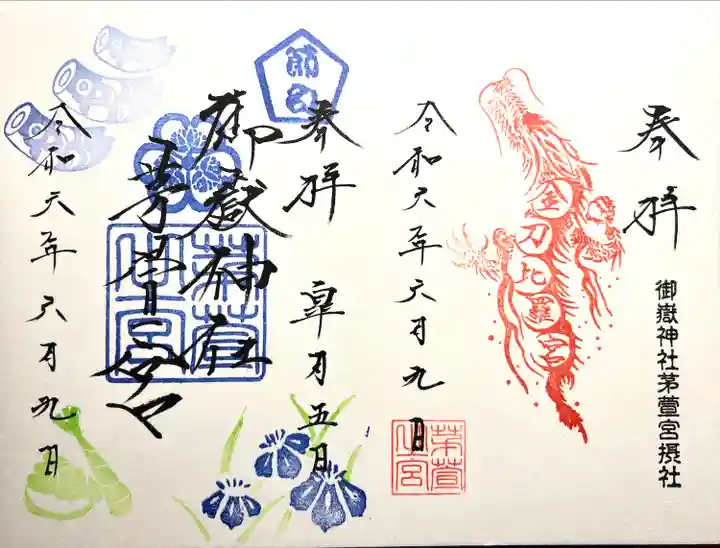 奉拝
御嶽神社茅萱宮摂社
金刀比羅宮
茅萱
之宮
令和六年六月九日
奉拝
皐月五日
節句
御嶽神社
茅萱宮
茅萱
之宮
令和六年六月九日